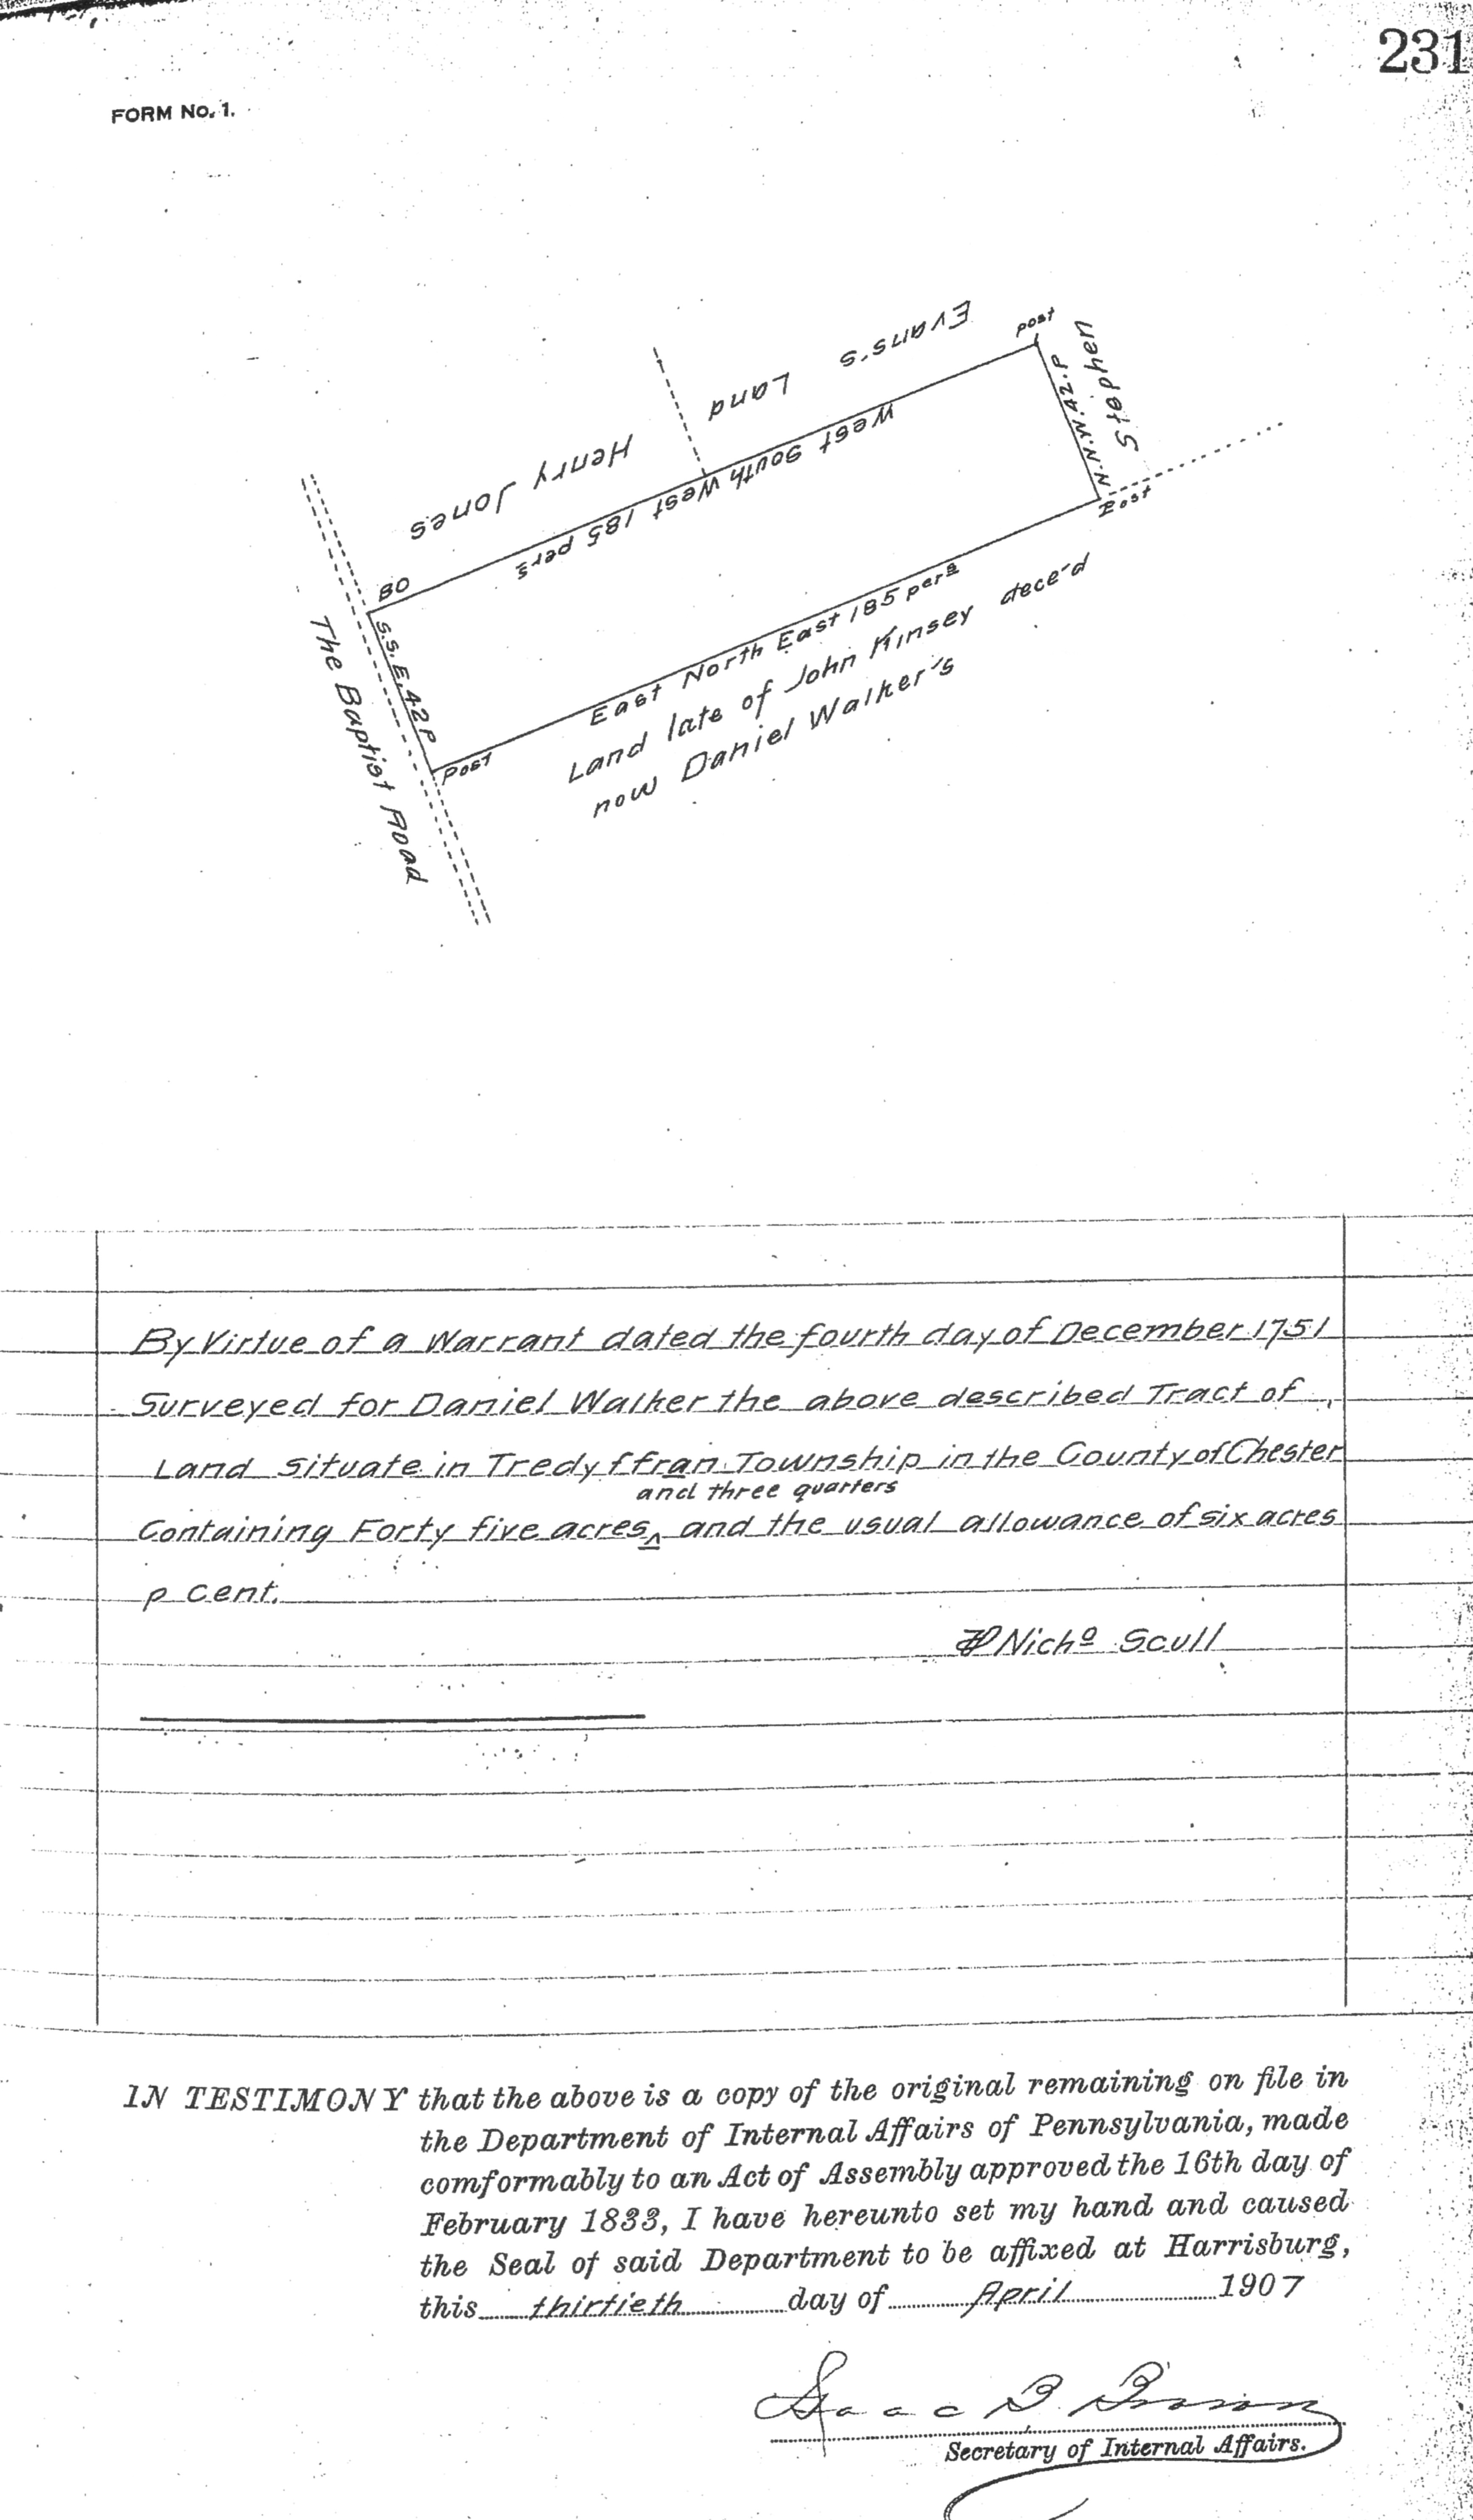 231
FORM No. 1.
Stephen
Evans's Land
Henry Jones
post
N.N.W. 42. P
West South West 185 pers
BO
S.S.E. 42 P
The Baptist Road
Post
Post
East North East 185 pers
Land late of John Kinsey dece'd
now Daniel Walker's
By Virtue of a Warrant dated the fourth day of December 1751
Surveyed for Daniel Walker the above described Tract of
Land situate in Tredyffran Township in the County of Chester
and three quarters
Containing Forty five acres ^ and the usual allowance of six acres
p cent.
⅌ Nicho Scull
IN TESTIMONY that the above is a copy of the original remaining on file in
the Department of Internal Affairs of Pennsylvania, made
comformably to an Act of Assembly approved the 16th day of
February 1833, I have hereunto set my hand and caused
the Seal of said Department to be affixed at Harrisburg,
this thirtieth day of April 1907
Isaac B. Brown
Secretary of Internal Affairs.